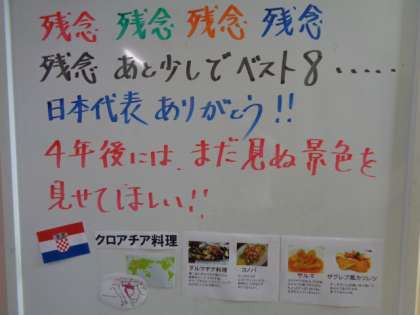 残念 残念 残念 残念
残念 あと少しでベスト8.....
日本代表 ありがとう!!
4年後には、まだ見ぬ景色を
見せてほしい!!
クロアチア料理
ダルマチア料理
コノバ
サルマ
ザグレブ風カツレツ